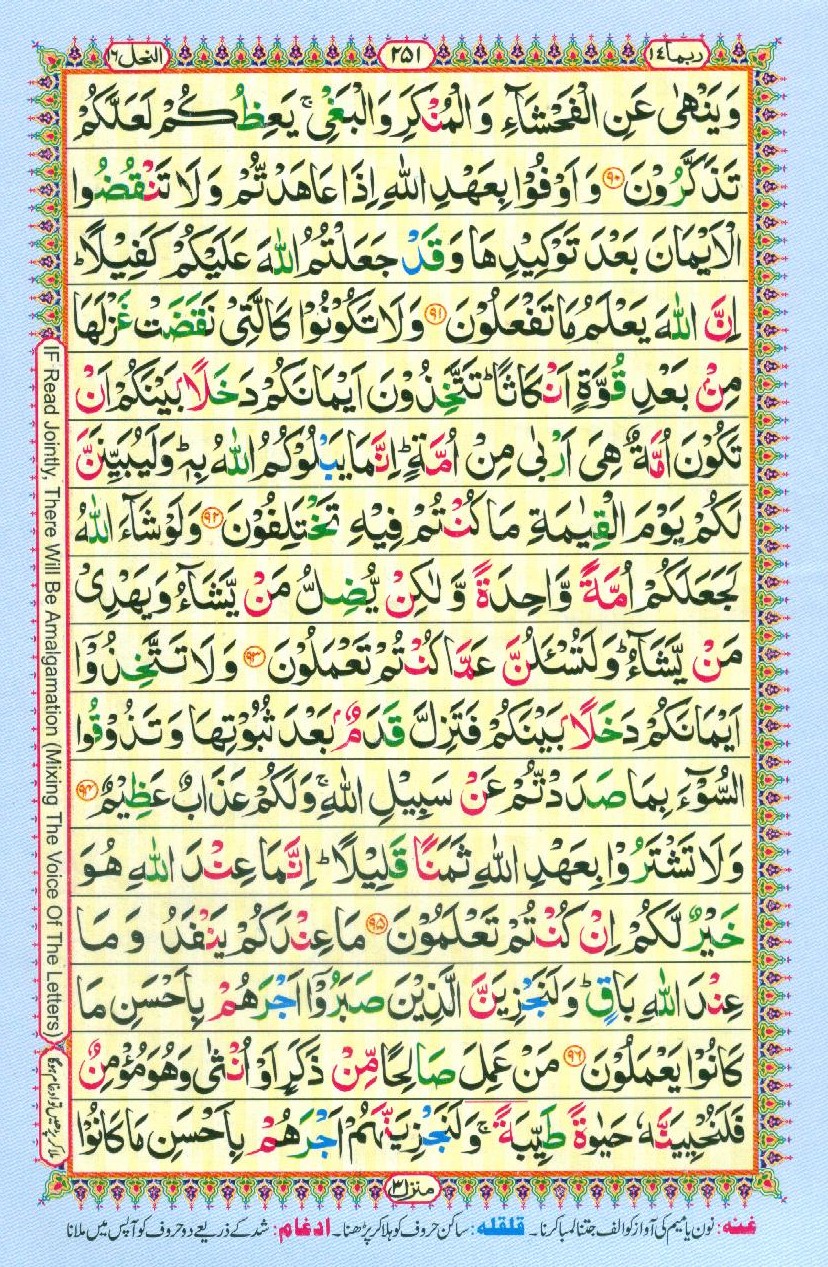 ربما ١٤
٢٥١
النحل ١٦
وَيَنْهٰى عَنِ الْفَحْشَآءِ وَالْمُنْكَرِ وَالْبَغْيِ ۚ يَعِظُكُمْ لَعَلَّكُمْ
تَذَكَّرُوْنَ ﴿٩٠﴾ وَاَوْفُوْا بِعَهْدِ اللّٰهِ اِذَا عَاهَدْتُّمْ وَلَا تَنْقُضُوا
الْاَيْمَانَ بَعْدَ تَوْكِيْدِهَا وَقَدْ جَعَلْتُمُ اللّٰهَ عَلَيْكُمْ كَفِيْلًا ؕ
اِنَّ اللّٰهَ يَعْلَمُ مَا تَفْعَلُوْنَ ﴿٩١﴾ وَلَا تَكُوْنُوْا كَالَّتِيْ نَقَضَتْ غَزْلَهَا
مِنْۢ بَعْدِ قُوَّةٍ اَنْكَاثًا ؕ تَتَّخِذُوْنَ اَيْمَانَكُمْ دَخَلًاۢ بَيْنَكُمْ اَنْ
تَكُوْنَ اُمَّةٌ هِيَ اَرْبٰى مِنْ اُمَّةٍ ؕ اِنَّمَا يَبْلُوْكُمُ اللّٰهُ بِهٖ ؕ وَلَيُبَيِّنَنَّ
لَكُمْ يَوْمَ الْقِيٰمَةِ مَا كُنْتُمْ فِيْهِ تَخْتَلِفُوْنَ ﴿٩٢﴾ وَلَوْ شَآءَ اللّٰهُ
لَجَعَلَكُمْ اُمَّةً وَّاحِدَةً وَّلٰكِنْ يُّضِلُّ مَنْ يَّشَآءُ وَيَهْدِيْ
مَنْ يَّشَآءُ ؕ وَلَتُسْـَٔلُنَّ عَمَّا كُنْتُمْ تَعْمَلُوْنَ ﴿٩٣﴾ وَلَا تَتَّخِذُوْٓا
اَيْمَانَكُمْ دَخَلًاۢ بَيْنَكُمْ فَتَزِلَّ قَدَمٌۢ بَعْدَ ثُبُوْتِهَا وَتَذُوْقُوا
السُّوْٓءَ بِمَا صَدَدْتُّمْ عَنْ سَبِيْلِ اللّٰهِ ۚ وَلَكُمْ عَذَابٌ عَظِيْمٌ ﴿٩٤﴾
وَلَا تَشْتَرُوْا بِعَهْدِ اللّٰهِ ثَمَنًا قَلِيْلًا ؕ اِنَّمَا عِنْدَ اللّٰهِ هُوَ
خَيْرٌ لَّكُمْ اِنْ كُنْتُمْ تَعْلَمُوْنَ ﴿٩٥﴾ مَا عِنْدَكُمْ يَنْفَدُ وَمَا
عِنْدَ اللّٰهِ بَاقٍ ؕ وَلَنَجْزِيَنَّ الَّذِيْنَ صَبَرُوْٓا اَجْرَهُمْ بِاَحْسَنِ مَا
كَانُوْا يَعْمَلُوْنَ ﴿٩٦﴾ مَنْ عَمِلَ صَالِحًا مِّنْ ذَكَرٍ اَوْ اُنْثٰى وَهُوَ مُؤْمِنٌ
فَلَنُحْيِيَنَّهٗ حَيٰوةً طَيِّبَةً ۚ وَلَنَجْزِيَنَّهُمْ اَجْرَهُمْ بِاَحْسَنِ مَا كَانُوْا
IF Read Jointly, There Will Be Amalgamation (Mixing The Voice Of The Letters)
ملا کر پڑھیں تو ادغام ہوگا
منزل ٣
غنہ: نون یا میم کی آواز کو الف جتنا لمبا کرنا۔ قلقلہ: ساکن حروف کو ہلا کر پڑھنا۔ ادغام: شد کے ذریعے دو حروف کو آپس میں ملانا